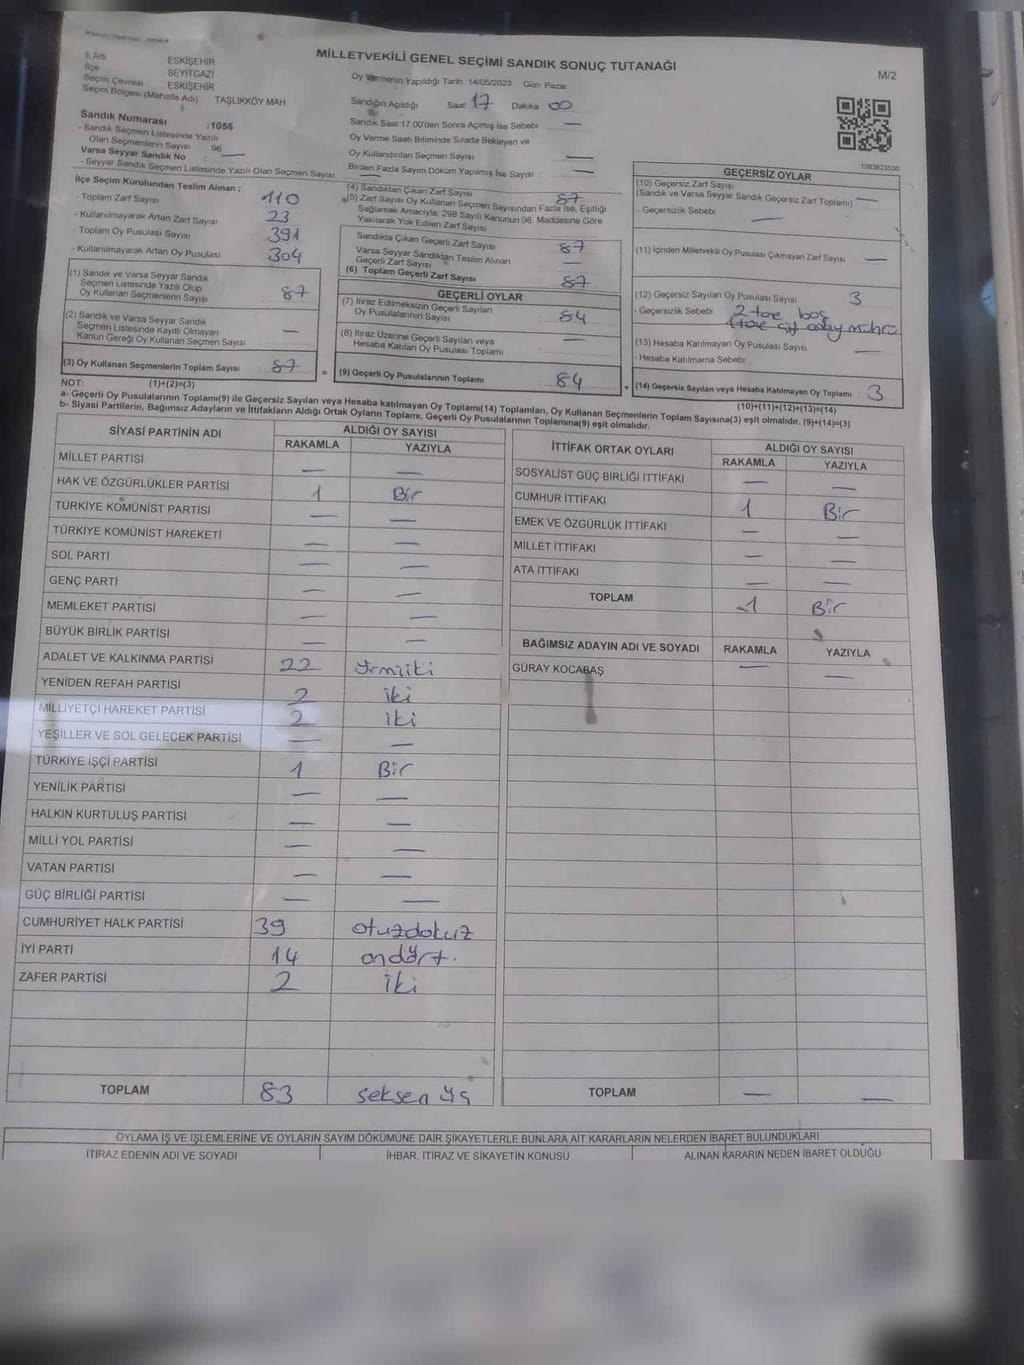 MİLLETVEKİLİ GENEL SEÇİMİ SANDIK SONUÇ TUTANAĞI
M/2
İl Adı ESKİŞEHİR
İlçe SEYİTGAZİ
Seçim Çevresi ESKİŞEHİR
Seçim Bölgesi (Mahalle Adı) TAŞLIKKÖY MAH
Sandık Numarası :1056
- Sandık Seçmen Listesinde Yazılı
Olan Seçmenlerin Sayısı 96
Varsa Seyyar Sandık No : —
- Seyyar Sandık Seçmen Listesinde Yazılı Olan Seçmen Sayısı —
Oy Vermenin Yapıldığı Tarih 14/05/2023 Gün: Pazar
Sandığın Açıldığı Saat 17 Dakika 00
Sandık Saat 17.00'den Sonra Açılmış İse Sebebi —
Oy Verme Saati Bitiminde Sırada Bekleyen ve
Oy Kullandırılan Seçmen Sayısı —
Birden Fazla Sayım Döküm Yapılmış İse Sayısı —
1083623530
İlçe Seçim Kurulundan Teslim Alınan ;
- Toplam Zarf Sayısı 110
- Kullanılmayarak Artan Zarf Sayısı 23
- Toplam Oy Pusulası Sayısı 391
- Kullanılmayarak Artan Oy Pusulası 304
(1) Sandık ve Varsa Seyyar Sandık
Seçmen Listesinde Yazılı Olup
Oy Kullanan Seçmenlerin Sayısı 87
(2) Sandık ve Varsa Seyyar Sandık
Seçmen Listesinde Kayıtlı Olmayan
Kanun Gereği Oy Kullanan Seçmen Sayısı —
(3) Oy Kullanan Seçmenlerin Toplam Sayısı 87 =
(4) Sandıktan Çıkan Zarf Sayısı 87
(5) Zarf Sayısı Oy Kullanan Seçmen Sayısından Fazla İse, Eşitliği
Sağlamak Amacıyla, 298 Sayılı Kanunun 98. Maddesine Göre
Yakılarak Yok Edilen Zarf Sayısı
Sandıkta Çıkan Geçerli Zarf Sayısı 87
Varsa Seyyar Sandıktan Teslim Alınan
Geçerli Zarf Sayısı —
(6) Toplam Geçerli Zarf Sayısı 87
GEÇERLİ OYLAR
(7) İtiraz Edilmeksizin Geçerli Sayılan
Oy Pusulalarının Sayısı 84
(8) İtiraz Üzerine Geçerli Sayılan veya
Hesaba Katılan Oy Pusulası Toplamı —
(9) Geçerli Oy Pusulalarının Toplamı 84 +
GEÇERSİZ OYLAR
(10) Geçersiz Zarf Sayısı
(Sandık ve Varsa Seyyar Sandık Geçersiz Zarf Toplamı) —
- Geçersizlik Sebebi —
(11) İçinden Milletvekili Oy Pusulası Çıkmayan Zarf Sayısı —
(12) Geçersiz Sayılan Oy Pusulası Sayısı 3
- Geçersizlik Sebebi 2 tane boş
(13) Hesaba Katılmayan Oy Pusulası Sayısı —
- Hesaba Katılmama Sebebi
(14) Geçersiz Sayılan veya Hesaba Katılmayan Oy Toplamı : 3
NOT: (1)+(2)=(3) (10)+(11)+(12)+(13)=(14)
a- Geçerli Oy Pusulalarının Toplamı(9) ile Geçersiz Sayılan veya Hesaba katılmayan Oy Toplamı(14) Toplamları, Oy Kullanan Seçmenlerin Toplam Sayısına(3) eşit olmalıdır. (9)+(14)=(3)
b- Siyasi Partilerin, Bağımsız Adayların ve İttifakların Aldığı Ortak Oyların Toplamı, Geçerli Oy Pusulalarının Toplamına(9) eşit olmalıdır.
SİYASİ PARTİNİN ADI ALDIĞI OY SAYISI
RAKAMLA YAZIYLA
MİLLET PARTİSİ — —
HAK VE ÖZGÜRLÜKLER PARTİSİ 1 Bir
TÜRKİYE KOMÜNİST PARTİSİ — —
TÜRKİYE KOMÜNİST HAREKETİ — —
SOL PARTİ — —
GENÇ PARTİ — —
MEMLEKET PARTİSİ — —
BÜYÜK BİRLİK PARTİSİ — —
ADALET VE KALKINMA PARTİSİ 22 Yirmiiki
YENİDEN REFAH PARTİSİ 2 iki
MİLLİYETÇİ HAREKET PARTİSİ 2 iki
YEŞİLLER VE SOL GELECEK PARTİSİ — —
TÜRKİYE İŞÇİ PARTİSİ 1 Bir
YENİLİK PARTİSİ — —
HALKIN KURTULUŞ PARTİSİ — —
MİLLİ YOL PARTİSİ — —
VATAN PARTİSİ — —
GÜÇ BİRLİĞİ PARTİSİ — —
CUMHURİYET HALK PARTİSİ 39 otuzdokuz
İYİ PARTİ 14 ondört.
ZAFER PARTİSİ 2 iki
TOPLAM 83 seksen üç
İTTİFAK ORTAK OYLARI ALDIĞI OY SAYISI
RAKAMLA YAZIYLA
SOSYALİST GÜÇ BİRLİĞİ İTTİFAKI — —
CUMHUR İTTİFAKI 1 Bir
EMEK VE ÖZGÜRLÜK İTTİFAKI — —
MİLLET İTTİFAKI —
ATA İTTİFAKI — —
TOPLAM 1 Bir
BAĞIMSIZ ADAYIN ADI VE SOYADI RAKAMLA YAZIYLA
GÜRAY KOCABAŞ — —
TOPLAM — —
OYLAMA İŞ VE İŞLEMLERİNE VE OYLARIN SAYIM DÖKÜMÜNE DAİR ŞİKAYETLERLE BUNLARA AİT KARARLARIN NELERDEN İBARET BULUNDUKLARI
İTİRAZ EDENİN ADI VE SOYADI İHBAR, İTİRAZ VE ŞİKAYETİN KONUSU ALINAN KARARIN NEDEN İBARET OLDUĞU